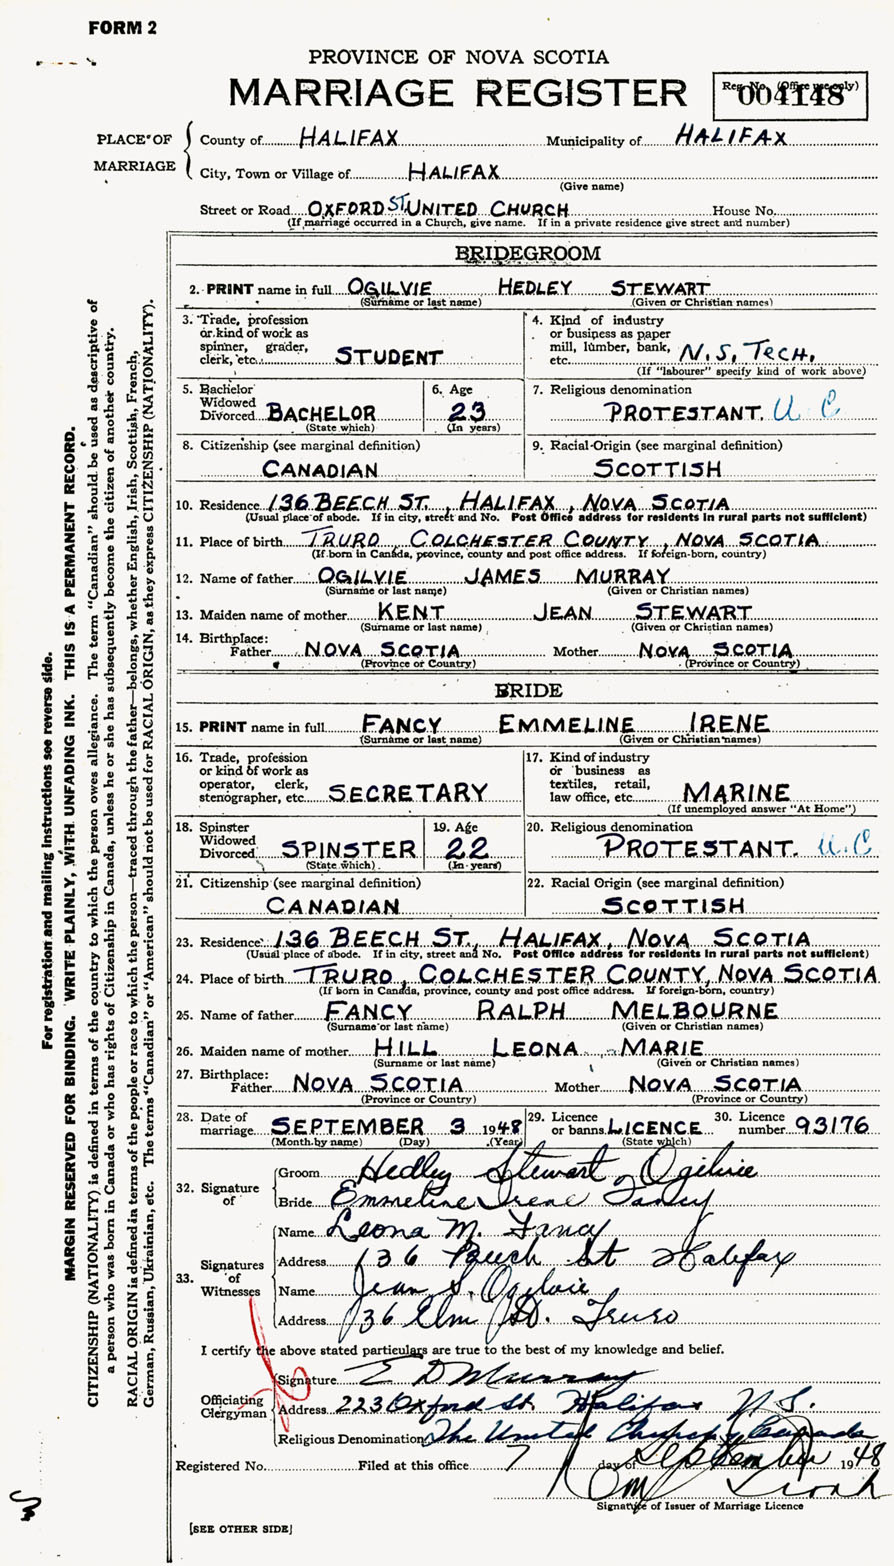 FORM 2
PROVINCE OF NOVA SCOTIA
MARRIAGE REGISTER
Reg. No. (Office use only)
004148
PLACE OF MARRIAGE
County of HALIFAX Municipality of HALIFAX
City, Town or Village of HALIFAX
(Give name)
Street or Road OXFORD ST. UNITED CHURCH House No.
(If marriage occurred in a Church, give name. If in a private residence give street and number)
BRIDEGROOM
2. PRINT name in full OGILVIE HEDLEY STEWART
(Surname or last name) (Given or Christian names)
3. Trade, profession or kind of work as spinner, grader, clerk, etc. STUDENT
4. Kind of industry or business as paper mill, lumber, bank, etc. N.S. TECH.
(If "labourer" specify kind of work above)
5. Bachelor Widowed Divorced BACHELOR
(State which)
6. Age 23
(In years)
7. Religious denomination PROTESTANT. U C
8. Citizenship (see marginal definition) CANADIAN
9. Racial Origin (see marginal definition) SCOTTISH
10. Residence 136 BEECH ST., HALIFAX, NOVA SCOTIA
(Usual place of abode. If in city, street and No. Post Office address for residents in rural parts not sufficient)
11. Place of birth TRURO, COLCHESTER COUNTY, NOVA SCOTIA
(If born in Canada, province, county and post office address. If foreign-born, country)
12. Name of father OGILVIE JAMES MURRAY
(Surname or last name) (Given or Christian names)
13. Maiden name of mother KENT JEAN STEWART
(Surname or last name) (Given or Christian names)
14. Birthplace:
Father NOVA SCOTIA Mother NOVA SCOTIA
(Province or Country) (Province or Country)
BRIDE
15. PRINT name in full FANCY EMMELINE IRENE
(Surname or last name) (Given or Christian names)
16. Trade, profession or kind of work as operator, clerk, stenographer, etc. SECRETARY
17. Kind of industry or business as textiles, retail, law office, etc. MARINE
(If unemployed answer "At Home")
18. Spinster Widowed Divorced SPINSTER
(State which)
19. Age 22
(In years)
20. Religious denomination PROTESTANT. U.C
21. Citizenship (see marginal definition) CANADIAN
22. Racial Origin (see marginal definition) SCOTTISH
23. Residence 136 BEECH ST., HALIFAX, NOVA SCOTIA
(Usual place of abode. If in city, street and No. Post Office address for residents in rural parts not sufficient)
24. Place of birth TRURO, COLCHESTER COUNTY, NOVA SCOTIA
(If born in Canada, province, county and post office address. If foreign-born, country)
25. Name of father FANCY RALPH MELBOURNE
(Surname or last name) (Given or Christian names)
26. Maiden name of mother HILL LEONA MARIE
(Surname or last name) (Given or Christian names)
27. Birthplace:
Father NOVA SCOTIA Mother NOVA SCOTIA
(Province or Country) (Province or Country)
28. Date of marriage SEPTEMBER 3 1948
(Month by name) (Day) (Year)
29. Licence or banns LICENCE
(State which)
30. Licence number 93176
32. Signature of
Groom Hedley Stewart Ogilvie
Bride Emmeline Irene Fancy
33. Signatures of Witnesses
Name Leona M. Fancy
Address 136 Beech St Halifax
Name Jean S. Ogilvie
Address 136 Elm St. Truro
I certify the above stated particulars are true to the best of my knowledge and belief.
Officiating Clergyman
Signature E D Murray
Address 223 Oxford St. Halifax N.S.
Religious Denomination The United Church of Canada
Registered No. Filed at this office 7 day of September 1948
Signature of Issuer of Marriage Licence
[SEE OTHER SIDE]
For registration and mailing instructions see reverse side.
MARGIN RESERVED FOR BINDING. WRITE PLAINLY, WITH UNFADING INK. THIS IS A PERMANENT RECORD.
CITIZENSHIP (NATIONALITY) is defined in terms of the country to which the person owes allegiance. The term "Canadian" should be used as descriptive of
a person who was born in Canada or who has rights of Citizenship in Canada, unless he or she has subsequently become the citizen of another country.
RACIAL ORIGIN is defined in terms of the people or race to which the person—traced through the father—belongs, whether English, Irish, Scottish, French,
German, Russian, Ukrainian, etc. The terms "Canadian" or "American" should not be used for RACIAL ORIGIN, as they express CITIZENSHIP (NATIONALITY).